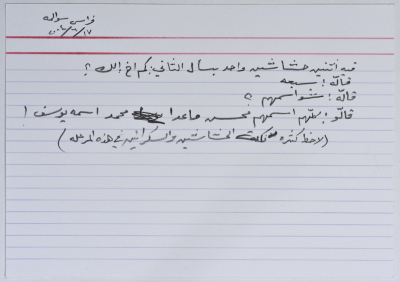 فراس سوالمه
فيه اثنين حشاشين واحد بسأل الثاني: كم اخ إلك ؟
قاله : سبعه
قاله : شو اسمهم ؟
قالو : كلهم اسمهم محسن ماعدا محمد اسمه يوسف !
(لاحظ كثره نكت الحشاشين والسكرانين في هذه المرحله)